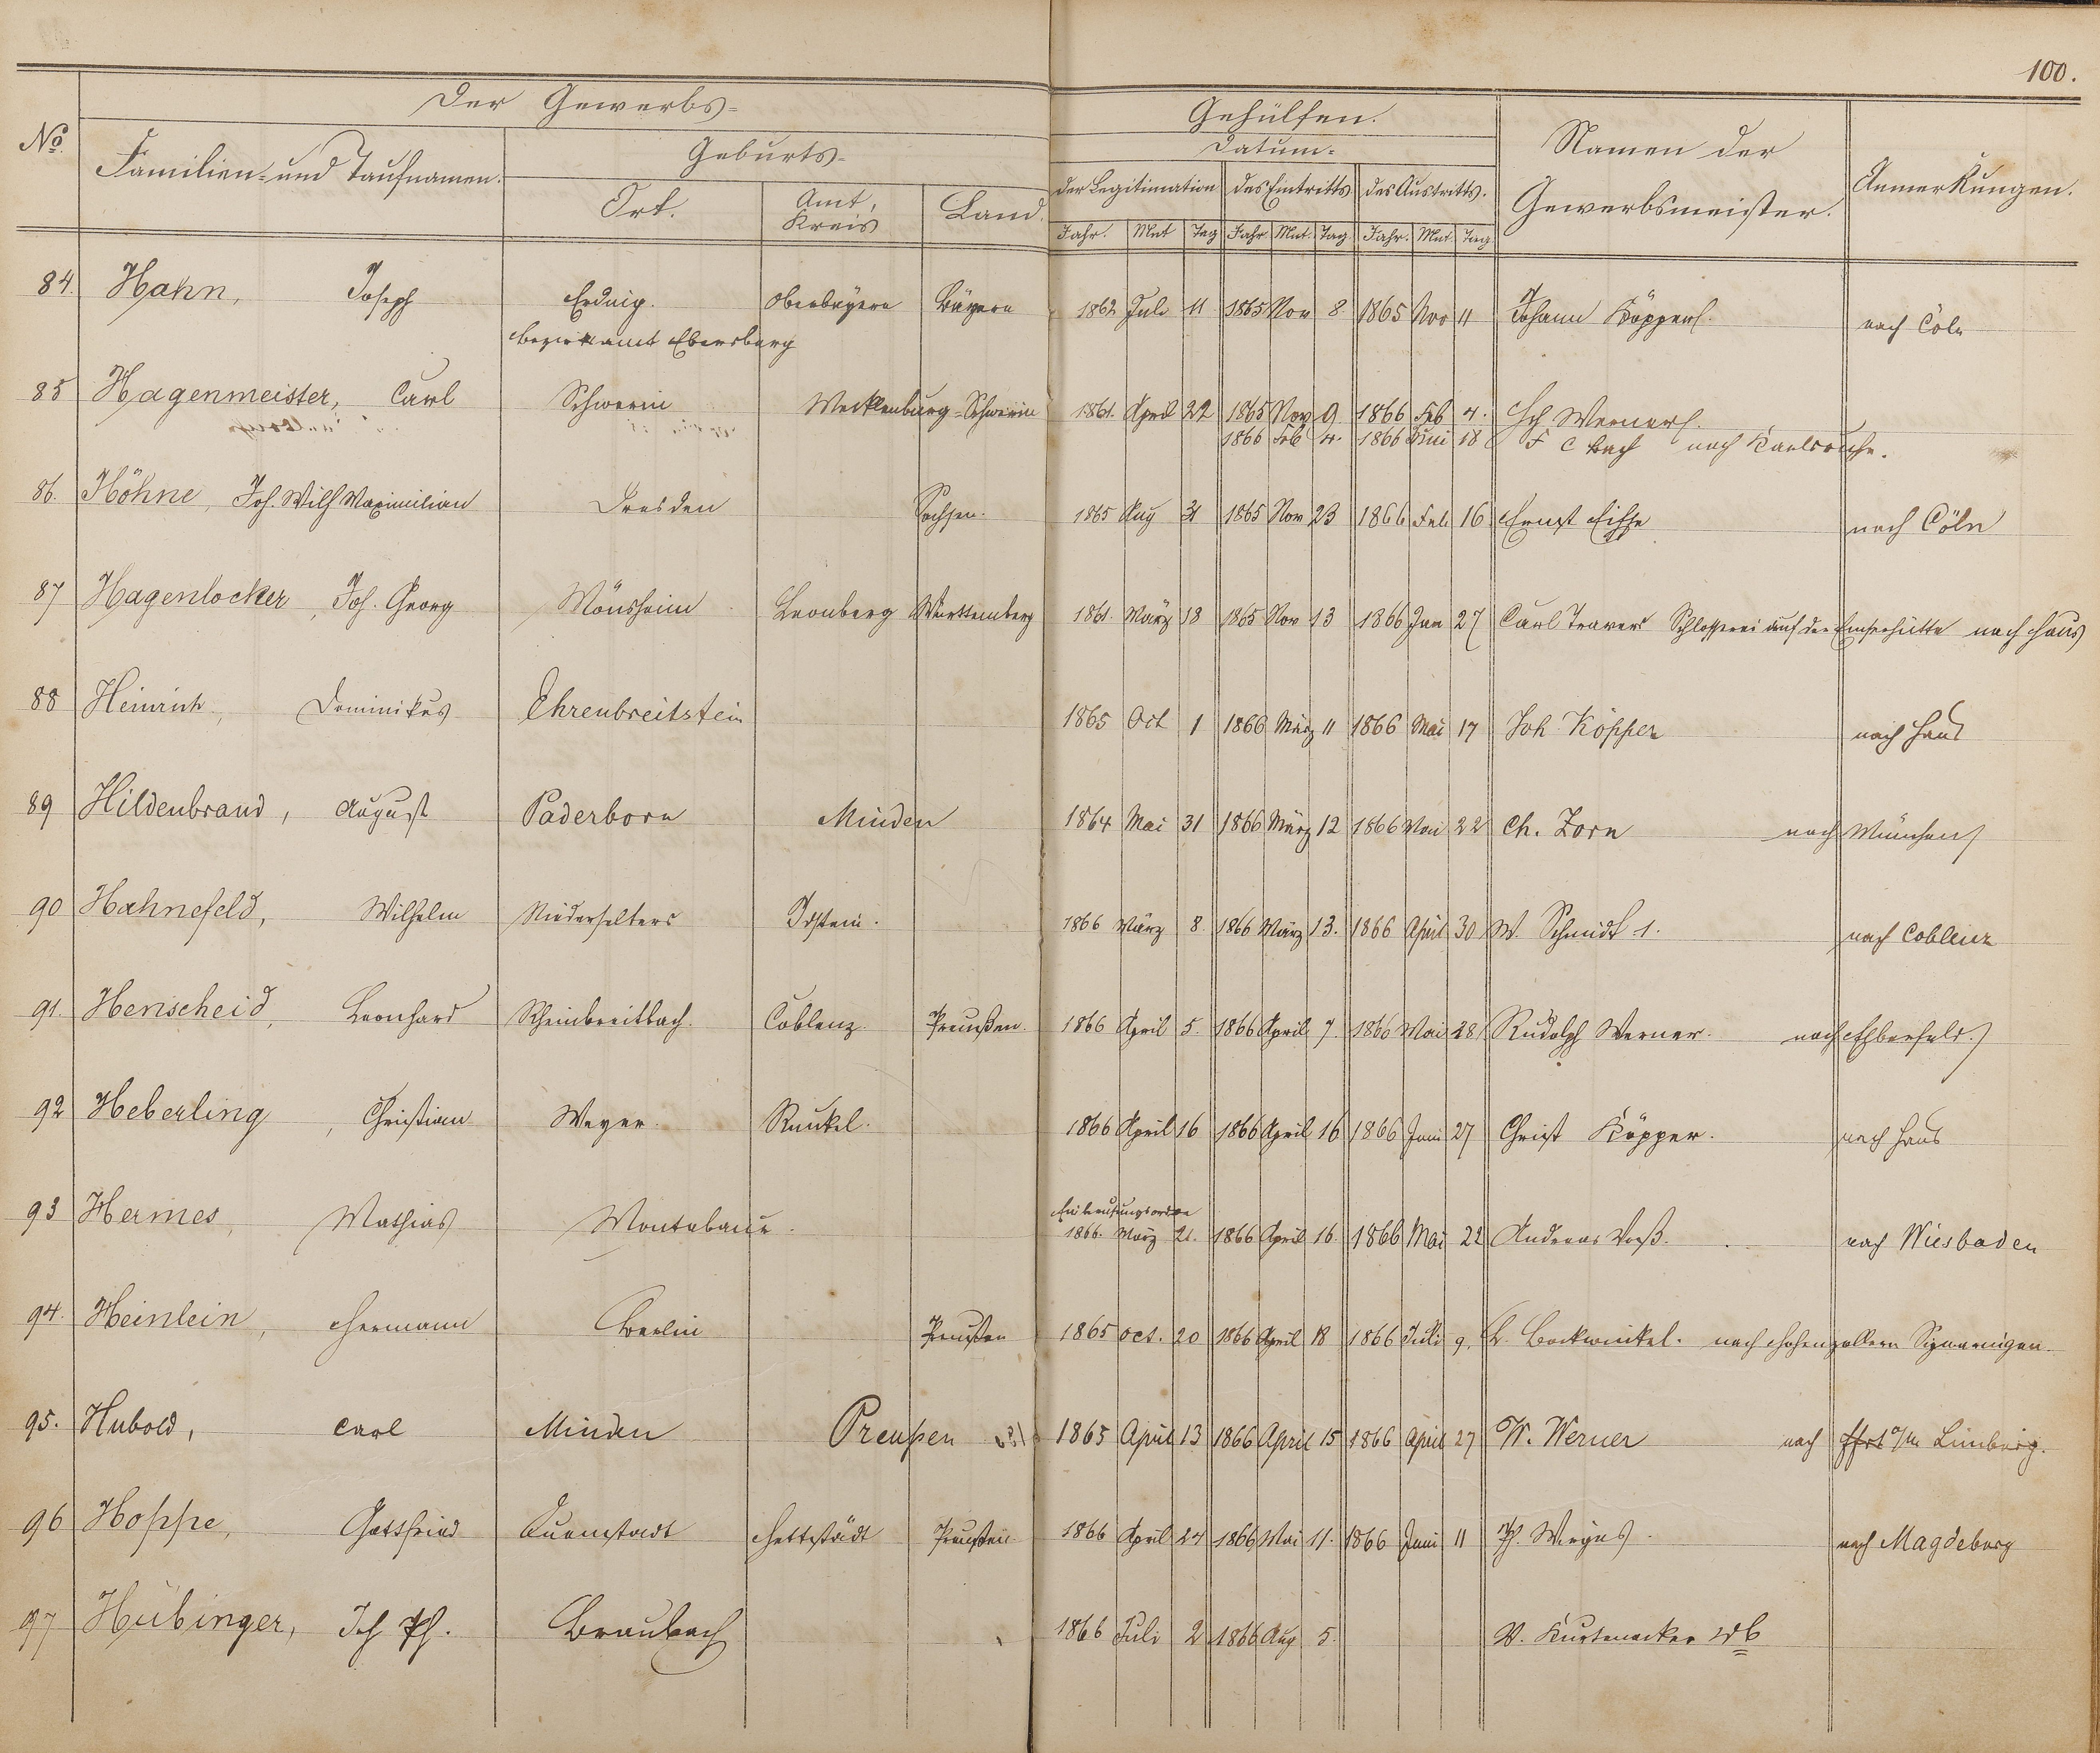 100.
Der Gewerbs= Gehülfen.
No. Familien= und Taufnamen. Geburts= Datum= Namen der Gewerbsmeister. Anmerkungen.
Ort. Amt, Kreis Land. der Legitimation des Eintritts des Austritts.
Jahr. Mnt Tag Jahr Mnt. Tag Jahr. Mnt. Tag
84. Hahn, Joseph Oberbayern Bayern 1862 Juli 11 1865 Nov 8 1865 Nov 11 Johann Köpper nach Cöln
Bezirksamt Ebersberg
85 Hagenmeister, Carl Schwerin Mecklenburg-Schwerin 1861. April 22 1865 Nov 9 1866 Feb 4. Hch Werner
1866 Feb 4. 1866 Juni 18 F C Bach nach Karlsruhe.
86. Höhne, Joh. Wilh Maximilian Dresden Sachsen. 1865 Aug 31 1865 Nov 23 1866 Feb 16 Ernst nach Cöln
87 Hagenlocker, Joh. Georg Mönsheim Leonberg Württemberg 1861. März 18 1865 Nov 13 1866 Jan 27 Carl Travers Schlosserei auf der Emserhütte nach Haus
88 Heinrich, Dominikus Ehrenbreitstein 1865 Oct 1 1866 März 11 1866 Mai 17 Joh Köpper nach Haus
89 Hildenbrand, August Paderborn Minden 1864 Mai 31 1866 März 12 1866 Mai 22 Ch. Zorn nach München
90 Hahnefeld, Wilhelm Niederselters Idstein. 1866 März 8. 1866 März 13. 1866 April 30 W. Schmidt 1. nach Coblenz
91. Henscheid, Leonhard Rheinbreitbach. Coblenz. Preußen. 1866 April 5. 1866 April 7. 1866 Mai 28 Rudolph Werner. nach Elberfeld.
92 Heberling, Christian Weyer. Runkel. 1866 April 16 1866 April 16 1866 Juni 27 Christ Köpper. nach Haus
93 Hermes, Mathias Montabaur. Einberufungsordre
1866. März 21. 1866 April 16. 1866 Mai 22 Andreas Voß. nach Wiesbaden
94. Heinlein, Hermann Berlin Preußen 1865 Oct. 20 1866 April 18 1866 Juli 9. Bockwinkel. nach Hohenzollern Sigmaringen.
95. Hubold, Carl Minden Preußen 1865 April 13 1866 April 15 1866 April 27 W. Werner nach Ffrt a/M Limburg.
96 Hoppe, Gottfried Quenstadt Hettstädt Preußen 1866 April 24 1866 Mai 11. 1866 Juni 11 Ph. nach Magdeburg
97 Hübinger, Joh Ph. Braubach 1866 Juli 2 1866 Aug 5. W. Kurtenacker